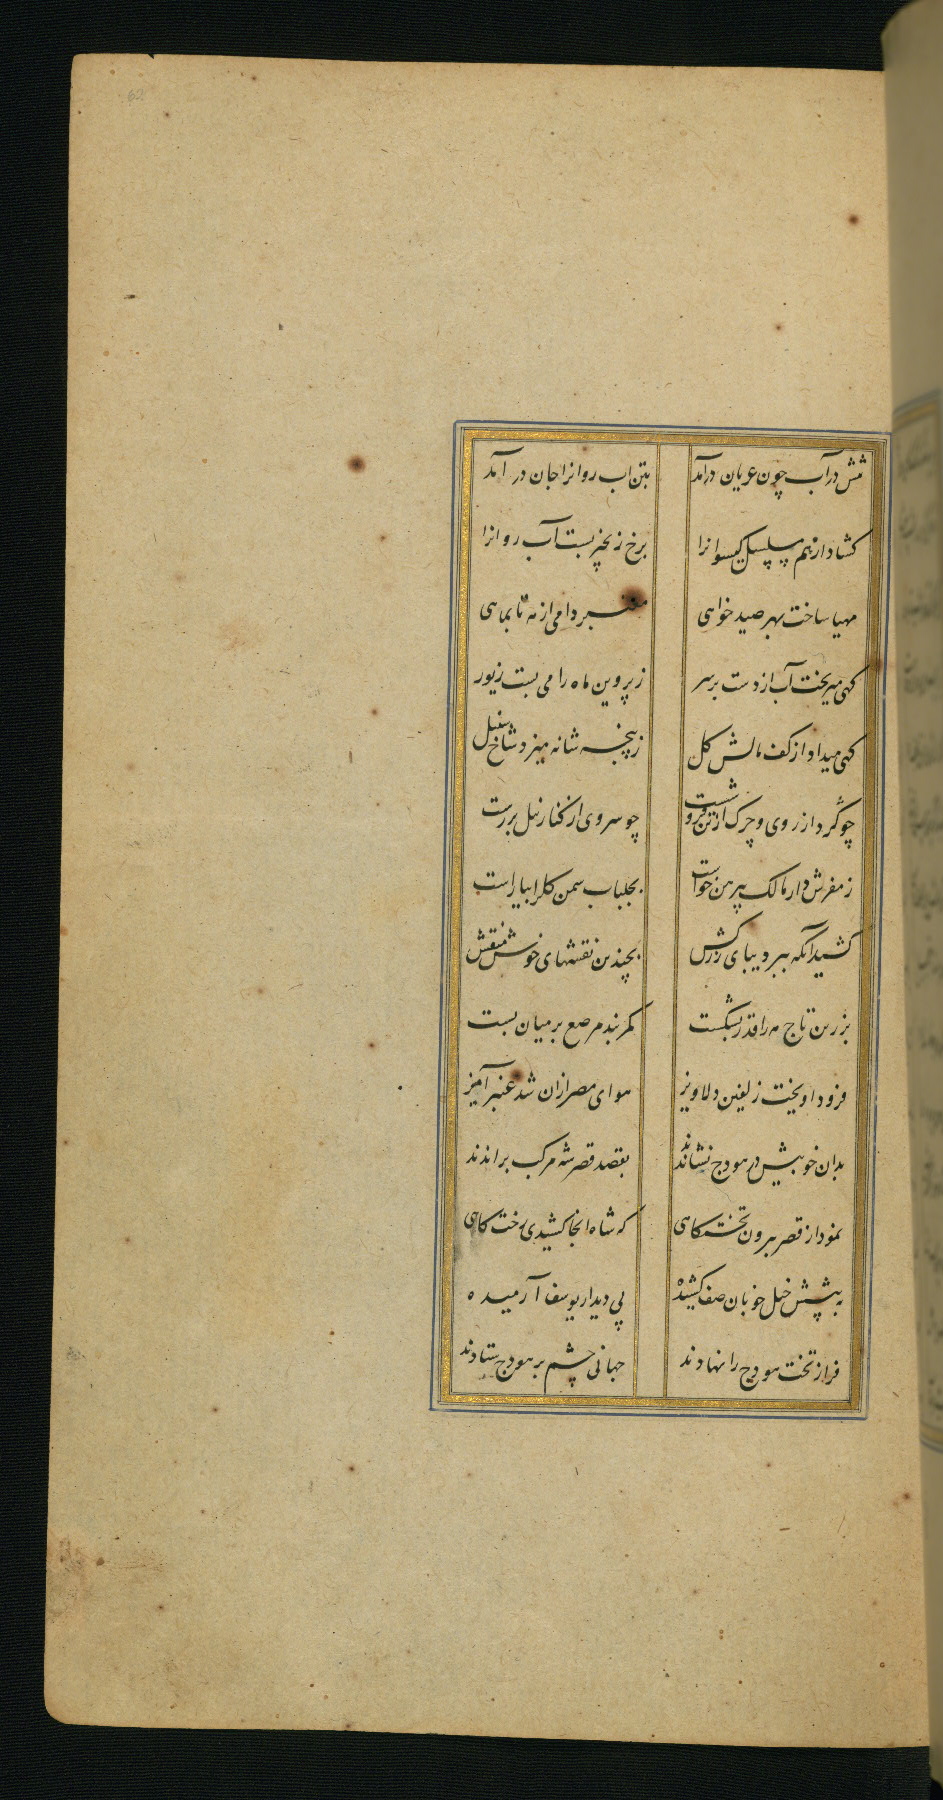 62
تنش در آب چون عریان درآمد بتن اب روانرا جان در آمد
کشاد از هم مسلسل کیسوانرا برخ زنجیر بست آب روانرا
مهیا ساخت بهر صید خواهی معنبر دامی از مه تا بماهی
کهی میریخت آب از دست بر سر ز پروین ماه را می بست زیور
کهی میداد از کف مالش کل ز پنجه شانه میزد شاخ سنبل
چو گرد از روی و چرک از تن فرو شست چو سروی از کنار نیل بررست
ز مفرش دار مالک پیرهن خواست بجلباب سمن کلرا بیاراست
کشید آنکه ببر دیبای زرکش بچندین نقشهای خوش منقش
بزرین تاج مه را قدر بشکست کمربند مرصع بر میان بست
فرود اویخت زلفین دلاویز هوای مصر ازان شد عنبر آمیز
بدان خوبیش در هودج نشاندند بقصد قصر شه مرکب براندند
نمود از قصر بیرون تختکاهی که شاه انجا کشیدی رخت کاهی
به پیشش خیل خوبان صف کشیده پی دیدار یوسف آرمیده
فراز تخت هودج را نهادند جهانی چشم بر هودج ستادند